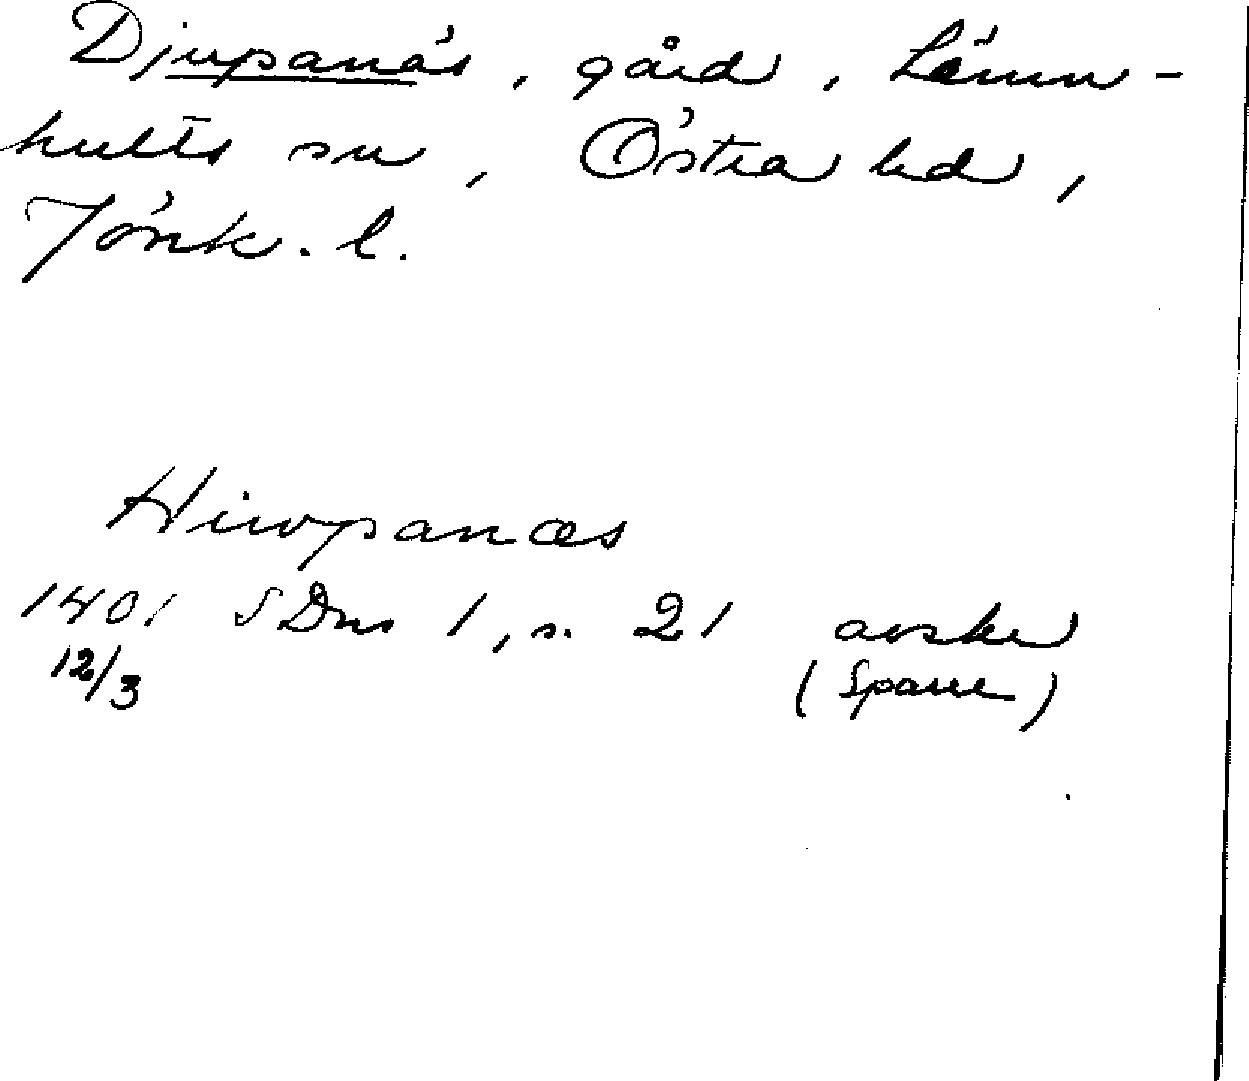 Djupanäs, gård, Lämn-
hults sn, Östra hd,
Jönk. l.
Hiwpanæs
1401 SDns 1, s. 21 avskr
12/3 (Sparre)